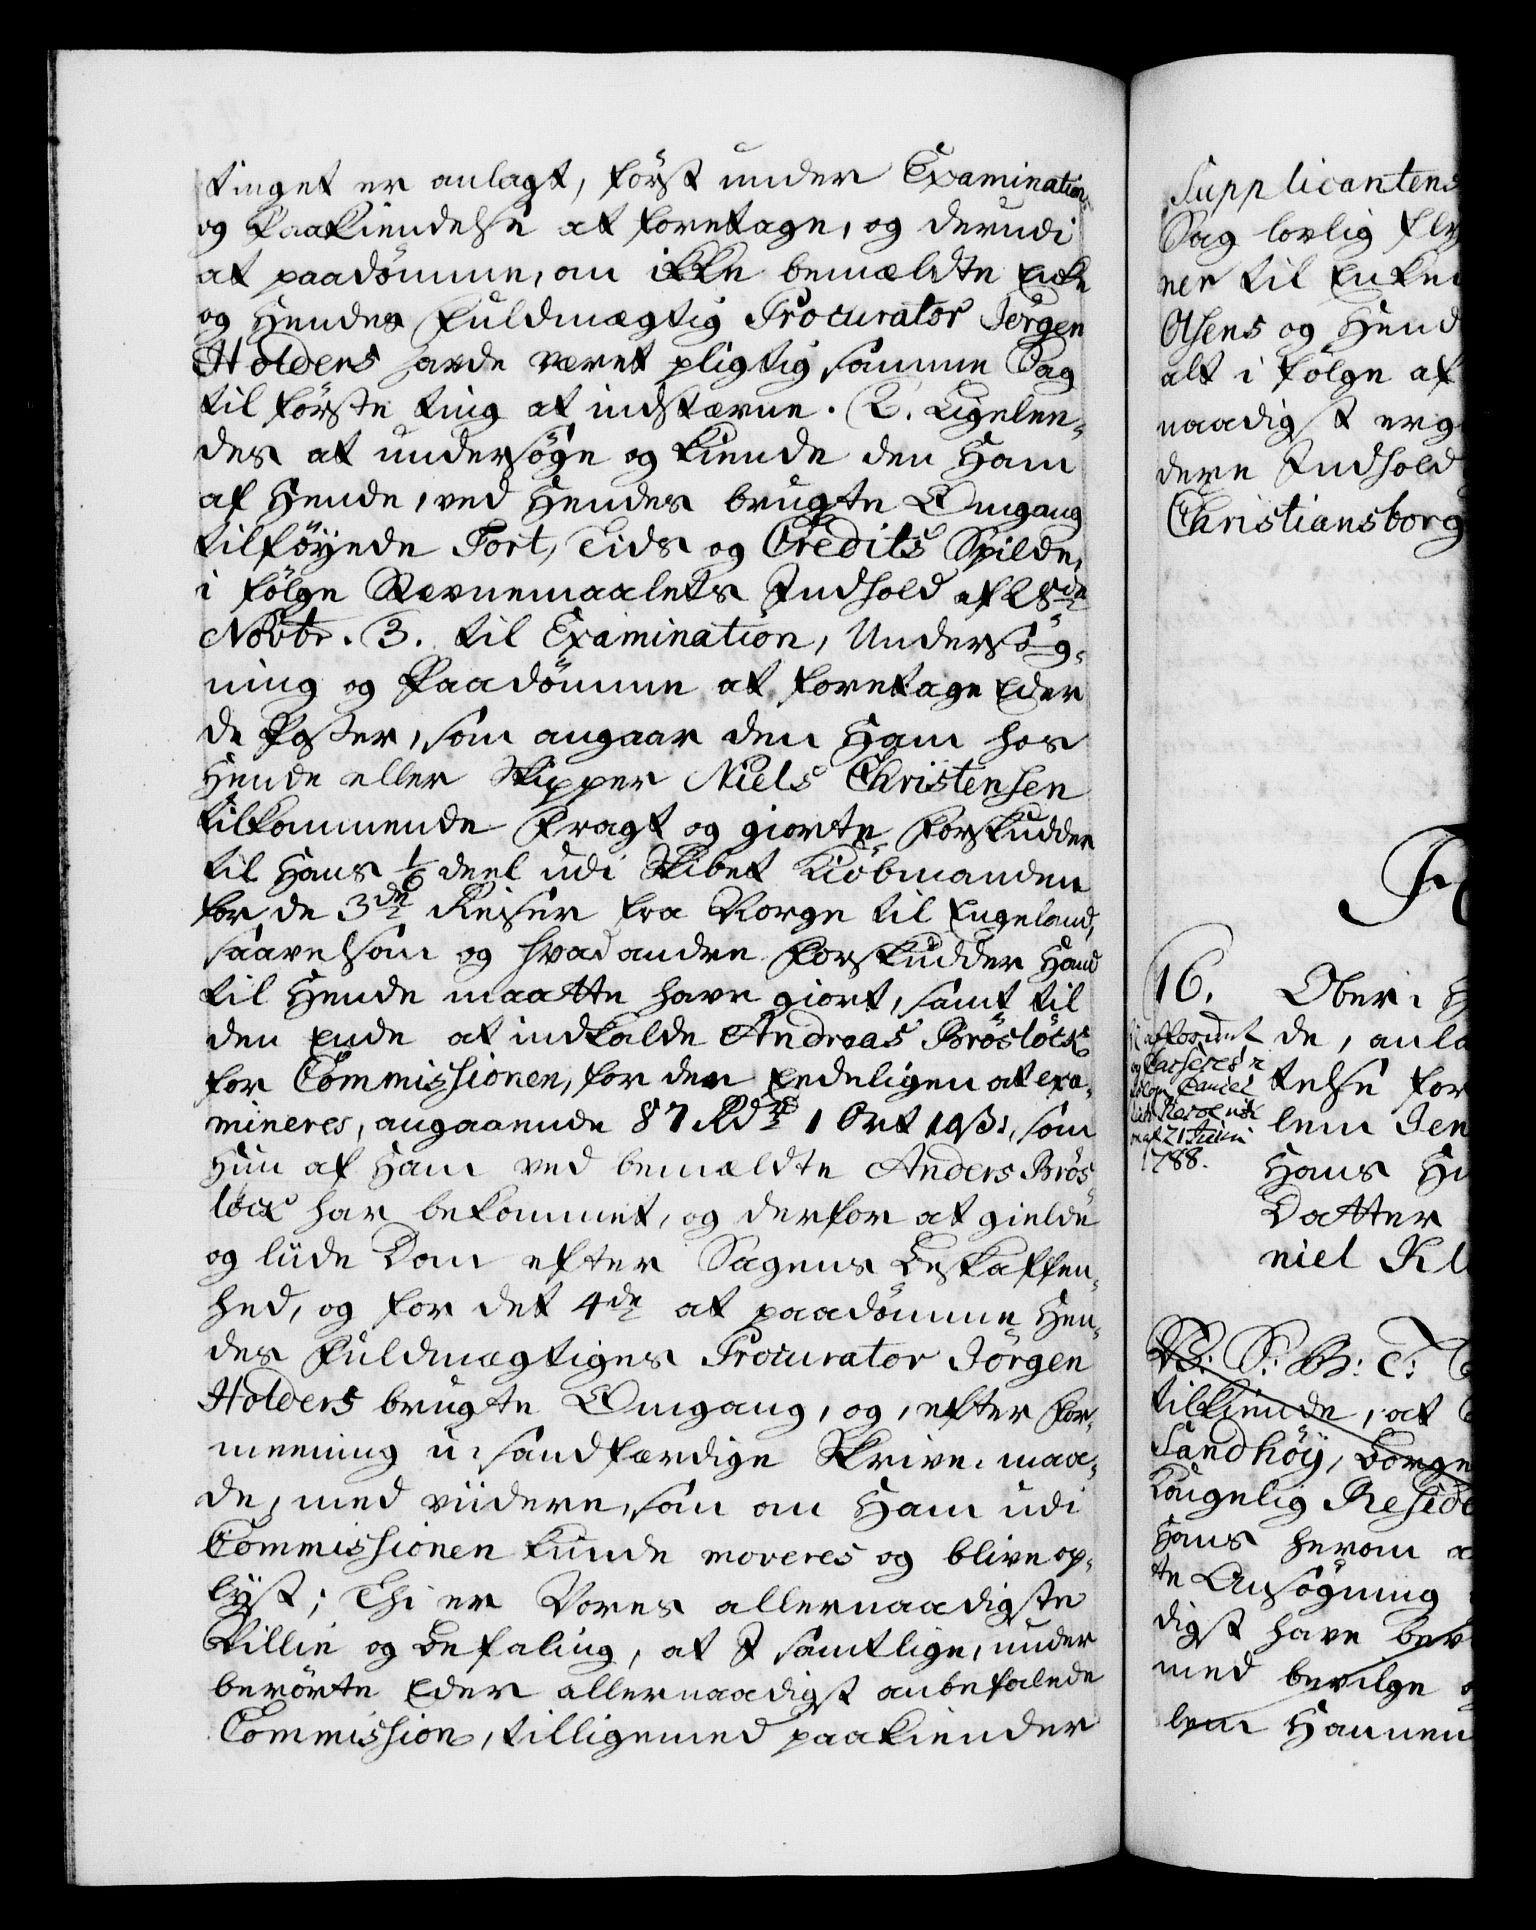 tinget er anlagt, først under Examination
og Paakiendelse at foretage, og derudi
at paadömme, om ikke bemældte Enke
og Hendes Fuldmægtig Procurator Jørgen
Holders havde været pligtig samme Sag
til første Ting at indstævne. 2. Ligelen-
des at undersöge og kiende den Ham
af Hende, ved Hendes brugte Omgang
tilföyede Tort, Tids og Credits Spilde,
i fölge Stævnemaalets Indhold af 28de
Novbr. 3. til Examination, Undersög-
ning og Paadömme at foretage Eder
de Poster, som angaar den Ham hos
Hende eller Skipper Niels Christensen
tilkommende Fragt og giorte Forskudder
til Hans 1/6 deel udi Skibet Kiöbmanden
for de 3de Reiser fra Norge til Engeland,
saavelsom og hvad andre Forskudder Hand
til Hende maatte have giort, samt til
den Ende at indkalde Andreas Bröslöck
for Commissionen, for der Eedeligen at exa-
mineres, angaaende 87 Rdr 1 Ort 19 β, som
Hun af Ham ved bemældte Anders Brös-
löck har bekommet, og derfor at gielde
og liide Dom efter Sagens Beskaffen-
hed, og for det 4de at paadömme Hen-
des Fuldmægtiges Procurator Jörgen
Holders brugte Omgang, og, efter For-
meening u-sandfærdige Skrive-maa-
de, med viidere, som om Ham udi
Commissionen kunde moveres og blive op-
lyst; Thi er Vores allernaadigste
Villie og Befaling, at I samtlige, under
berörte Eder allernaadigst anbefalede
Commission, tilligemed paakiender
Supplicantens
Sag lovlig
ner til Enken
Olsens og
alt i fölge af
naadigst
dere Indhold
Christiansborg
16.
Ober-
de,
telse for
lem Jen
Hans
Datter
niel
af 21 Junii
1788.
tilkiende, at
Sandhöy, Borge
Kongelig Reside
Hans herom
te Ansögning
digst have
med bevilge
lem Hannem